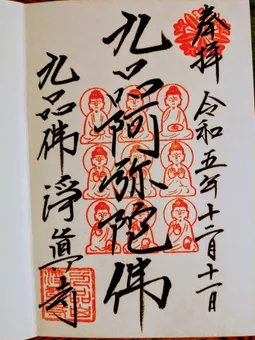 奉拝
令和五年十二月十一日
九品阿弥陀佛
九品佛 淨眞寺